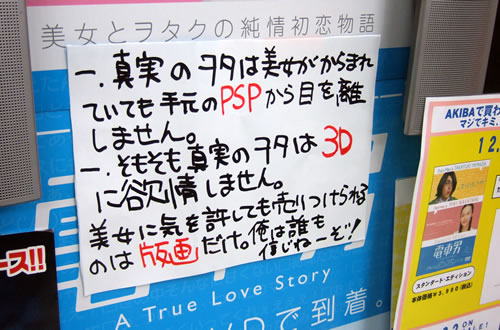 美女とヲタクの純情初恋物語
一.真実のヲタは美女がからまれ
ていても手元のPSPから目を離
しません。
一.そもそも真実のヲタは3D
に欲情しません。
美女に気を許しても売りつけられる
のは「版画」だけ。俺は誰も
信じねーぞ!
A True Love Story
で到着。
ース!!
AKIBAで買わ
マジでキミ、
12.
電車男
スタンダード・エディション
本体価格¥3,980(税込)